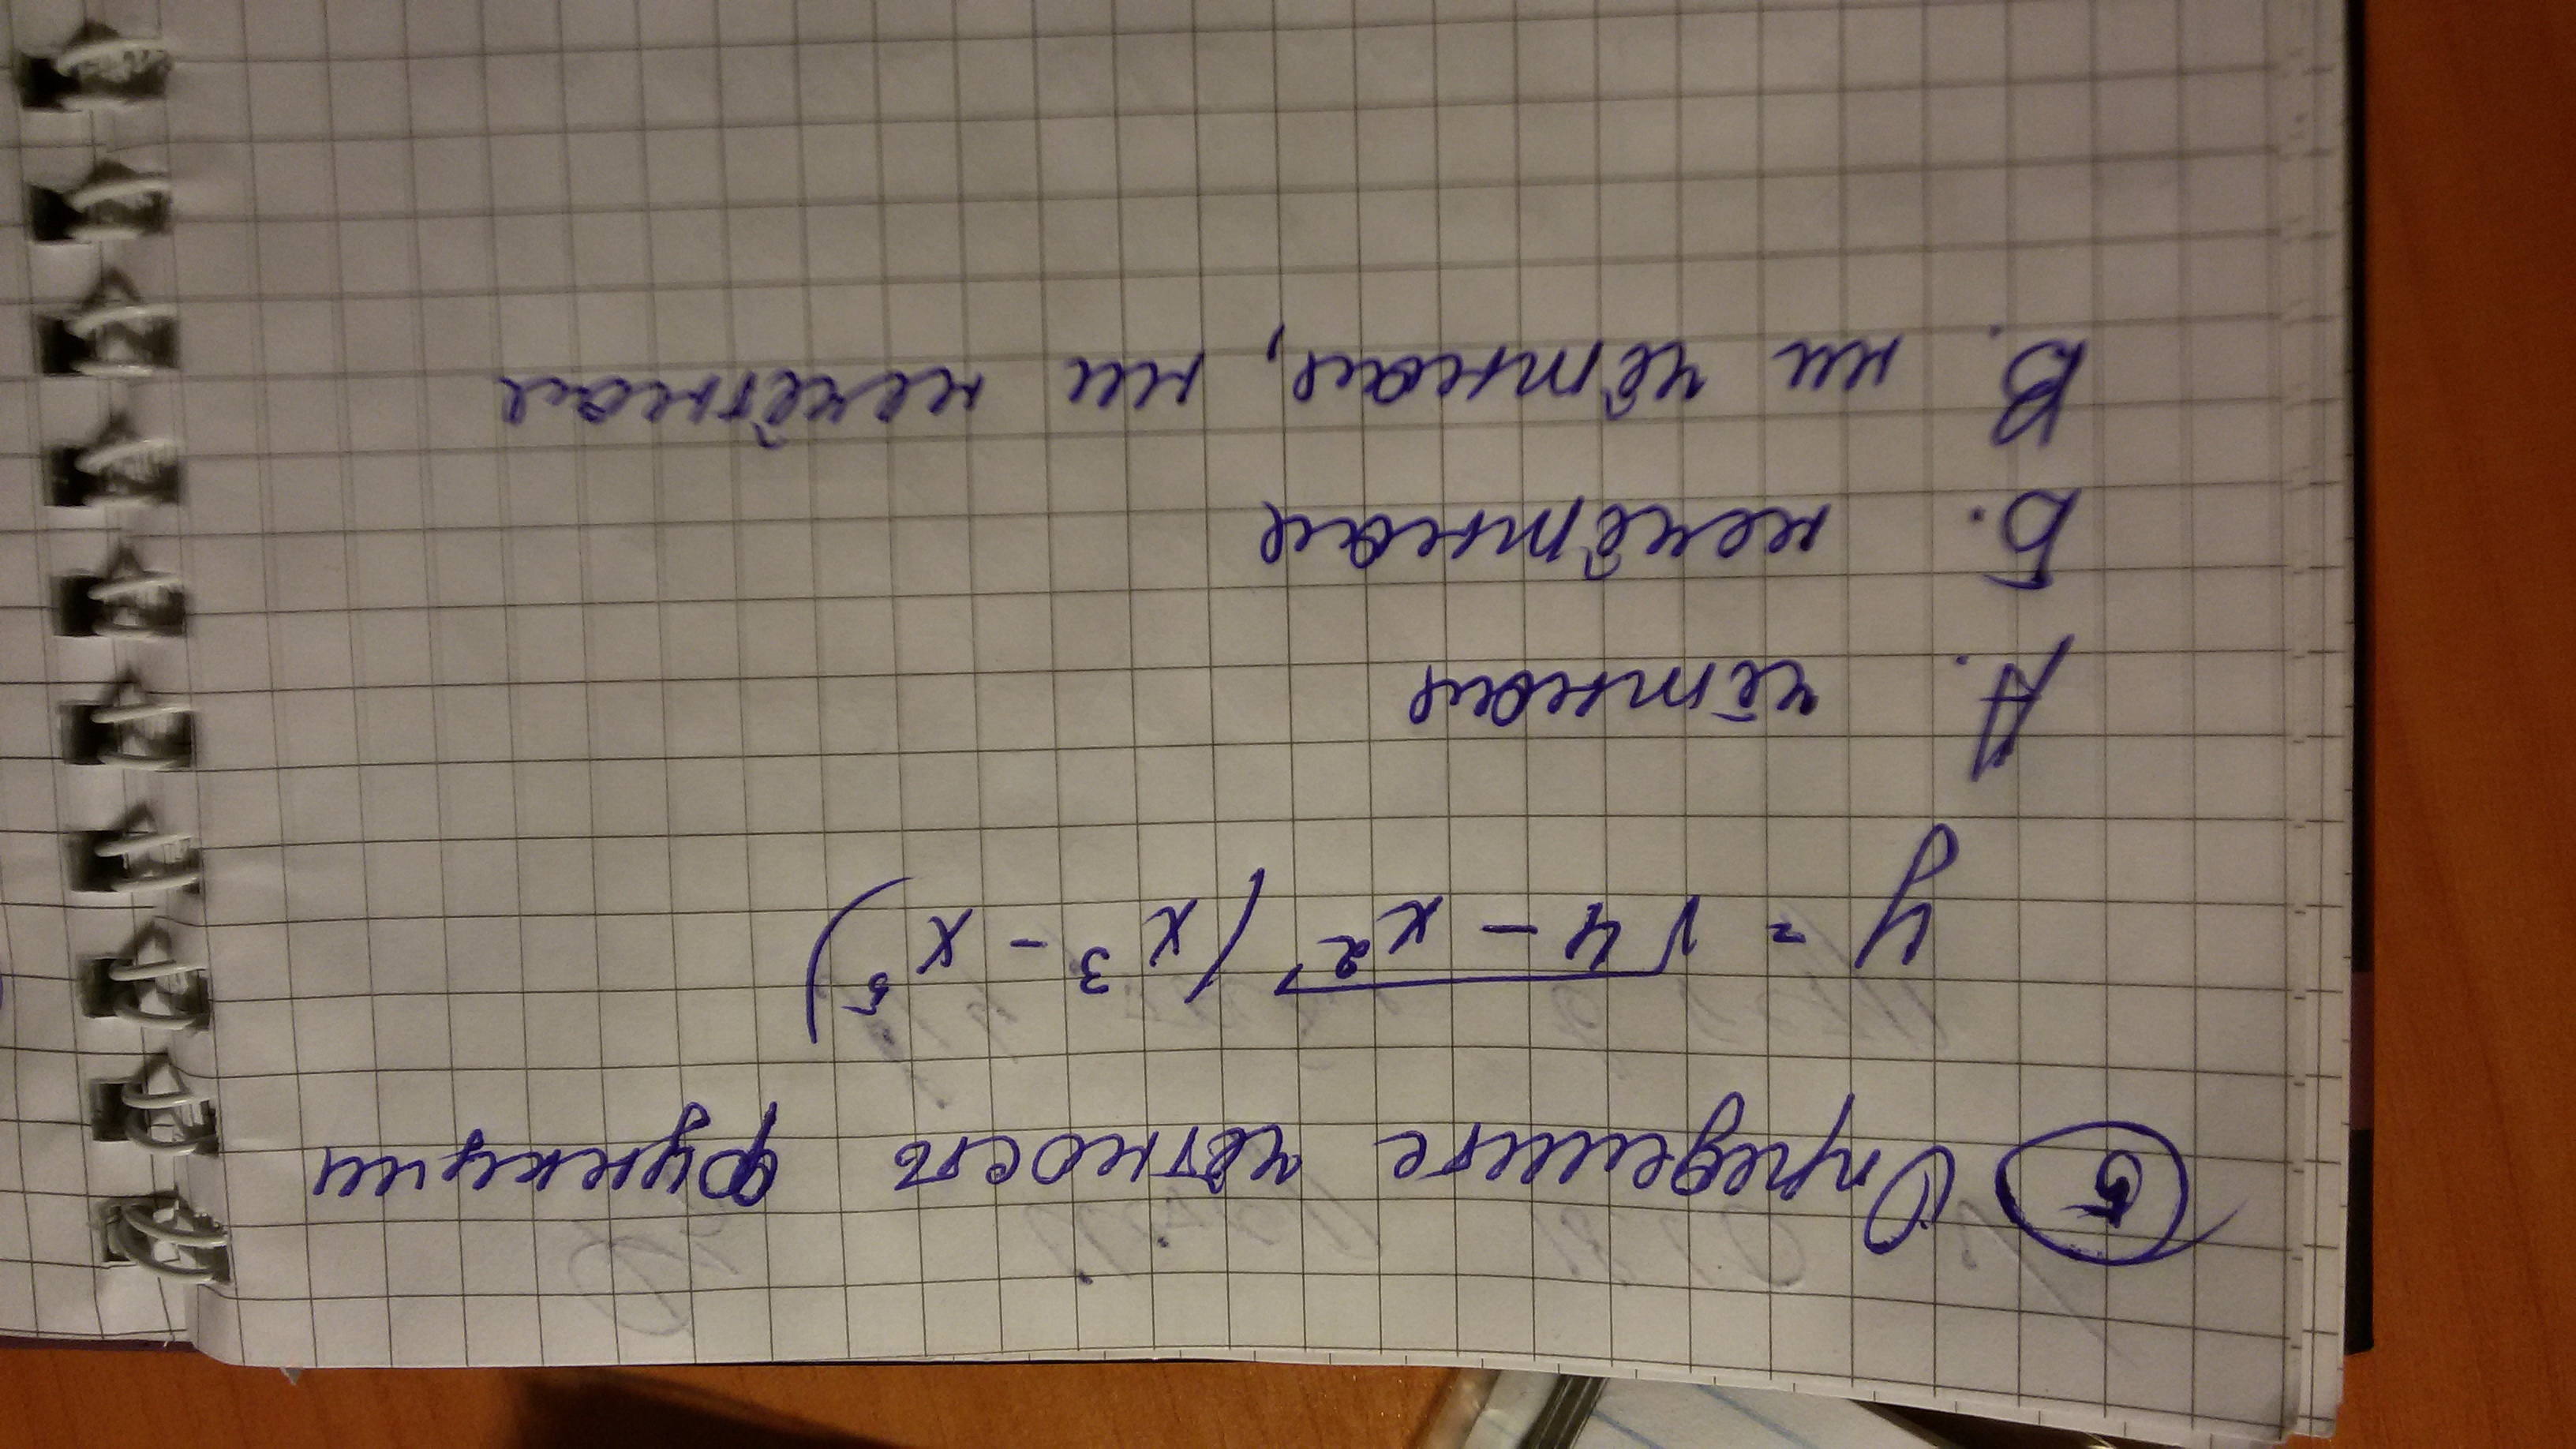 5 Определите чётность функции
y = √4 - x² (x³ - x⁵)
А. чётная
Б. нечётная
В. ни чётная, ни нечётная